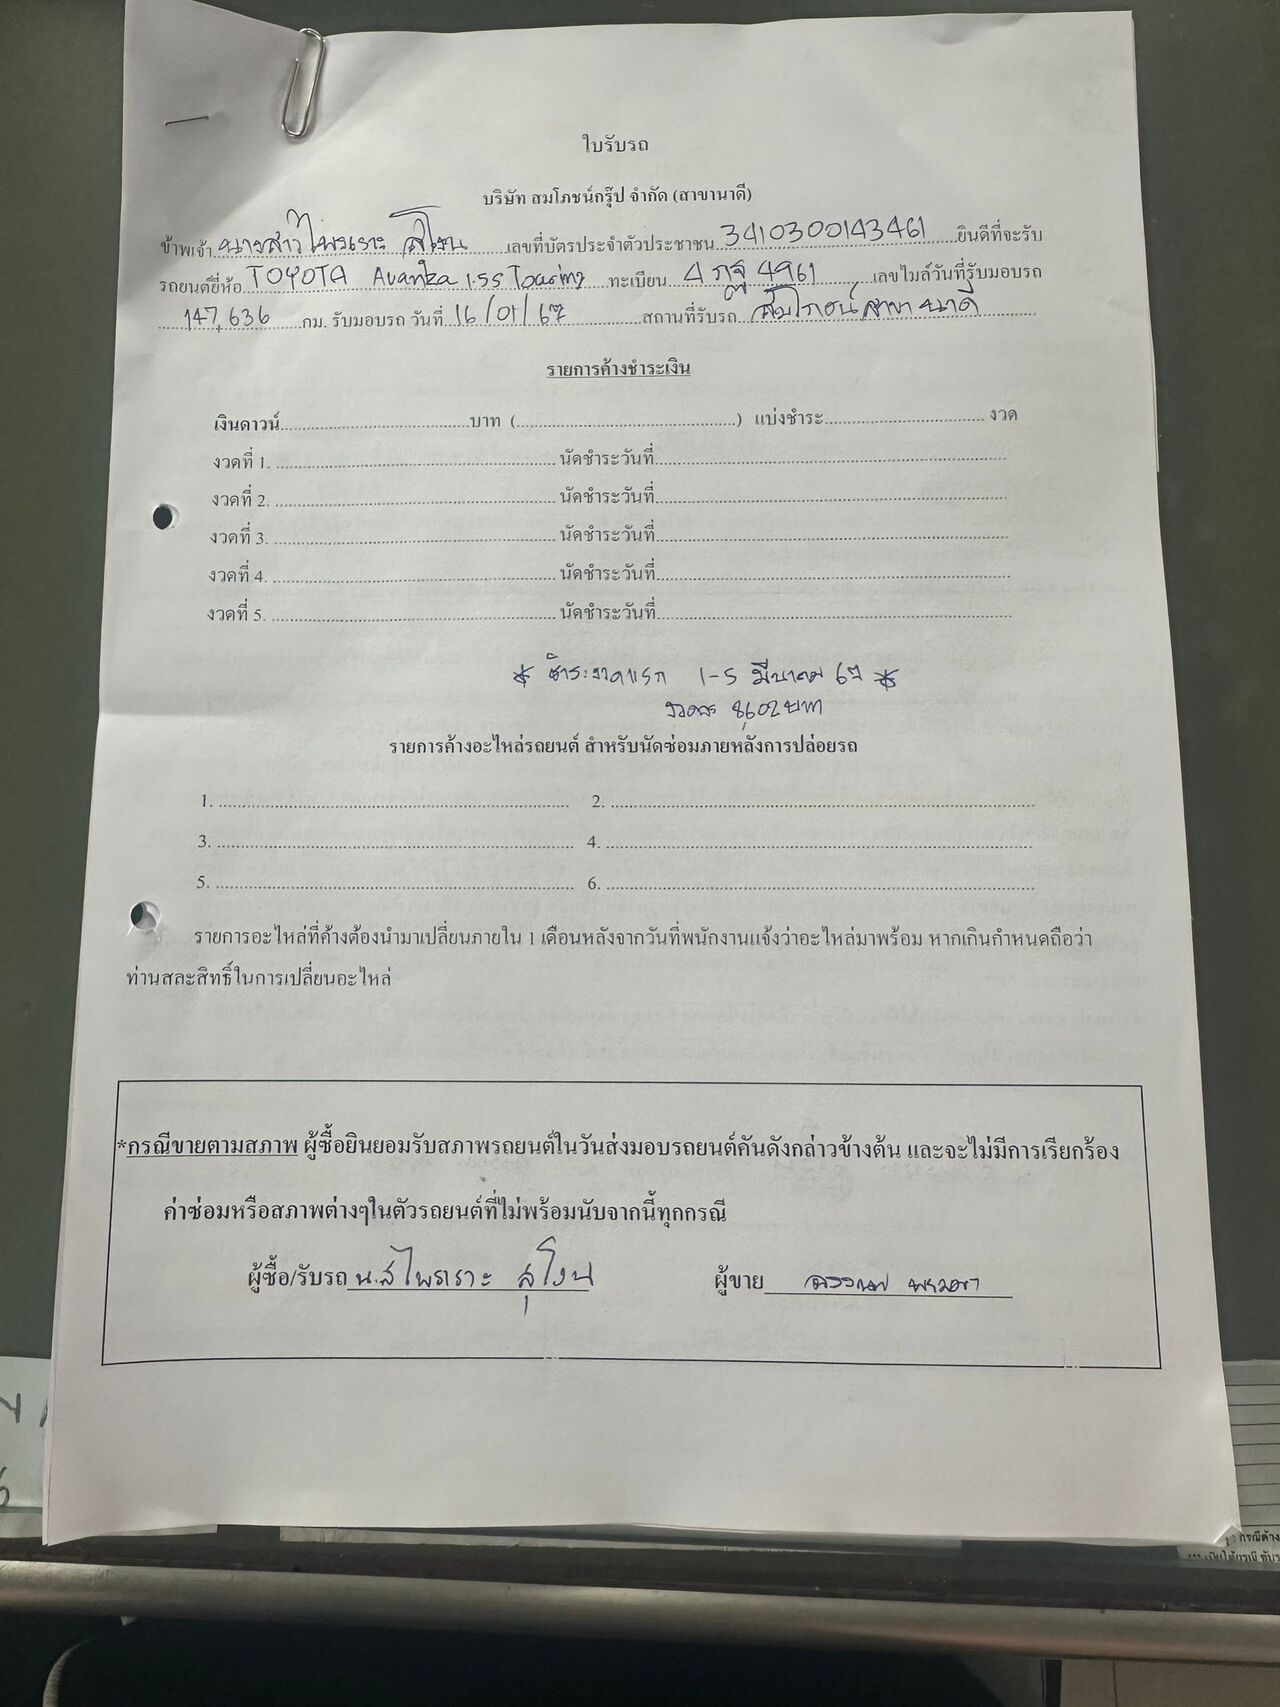 ใบรับรถ
บริษัท สมโภชน์กรุ๊ป จำกัด (สาขานาดี)
ข้าพเจ้า นางสาวไพเราะ สุโงน เลขที่บัตรประจำตัวประชาชน 3410300143461 ยินดีที่จะรับ
รถยนต์ยี่ห้อ TOYOTA Avanza 1.5S Touring ทะเบียน 4 กฎ 4961 เลขไมล์วันที่รับมอบรถ
147,636 กม. รับมอบรถ วันที่ 16/01/67 สถานที่รับรถ สมโภชน์ สาขา นาดี
รายการค้างชำระเงิน
เงินดาวน์ บาท ( ) แบ่งชำระ งวด
งวดที่ 1. นัดชำระวันที่
งวดที่ 2. นัดชำระวันที่
งวดที่ 3. นัดชำระวันที่
งวดที่ 4. นัดชำระวันที่
งวดที่ 5. นัดชำระวันที่
* ชำระงวดแรก 1-5 มีนาคม 67 *
งวดละ 8,602 บาท
รายการค้างอะไหล่รถยนต์ สำหรับนัดซ่อมภายหลังการปล่อยรถ
1. 2.
3. 4.
5. 6.
รายการอะไหล่ที่ค้างต้องนำมาเปลี่ยนภายใน 1 เดือนหลังจากวันที่พนักงานแจ้งว่าอะไหล่มาพร้อม หากเกินกำหนดถือว่า
ท่านสละสิทธิ์ในการเปลี่ยนอะไหล่
*กรณีขายตามสภาพ ผู้ซื้อยินยอมรับสภาพรถยนต์ในวันส่งมอบรถยนต์คันดังกล่าวข้างต้น และจะไม่มีการเรียกร้อง
ค่าซ่อมหรือสภาพต่างๆในตัวรถยนต์ที่ไม่พร้อมนับจากนี้ทุกกรณี
ผู้ซื้อ/รับรถ น.ส ไพเราะ สุโงน ผู้ขาย